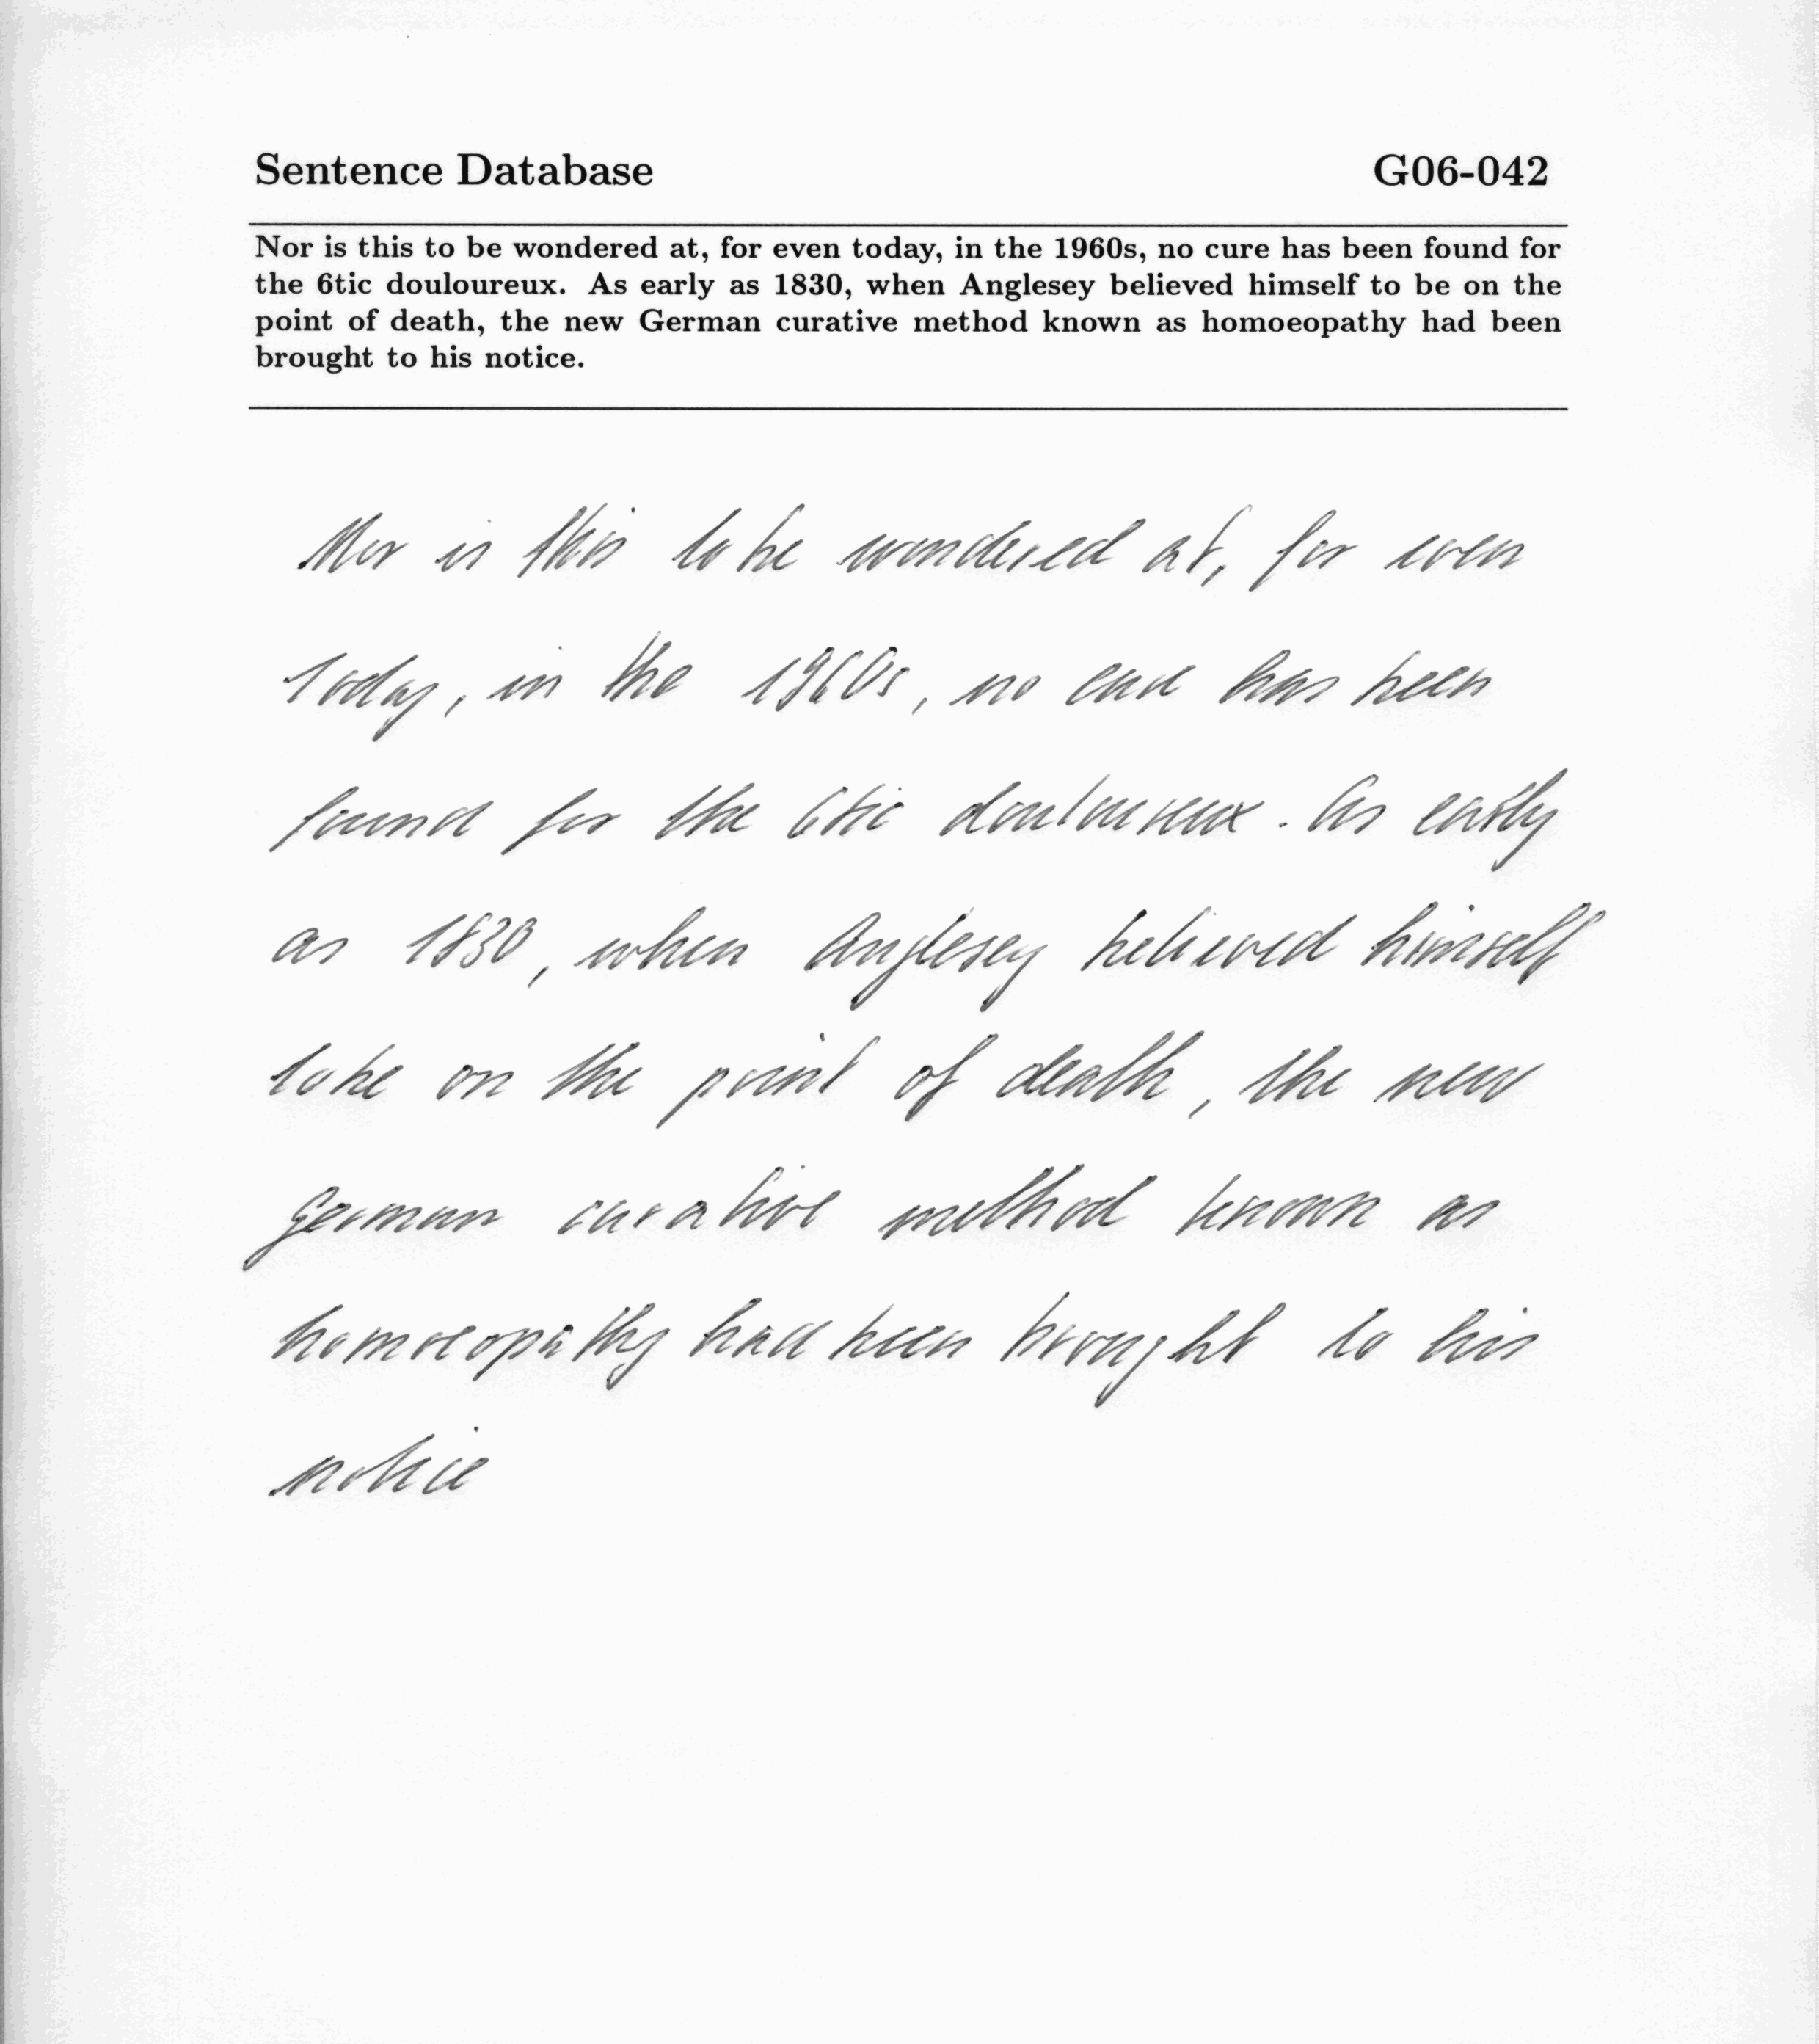 Sentence Database G06-042
Nor is this to be wondered at, for even today, in the 1960s, no cure has been found for
the 6tic douloureux. As early as 1830, when Anglesey believed himself to be on the
point of death, the new German curative method known as homoeopathy had been
brought to his notice.
Nor is this to be wondered at, for even
today, in the 1960s, no cure has been
found for the 6tic douloureux. As early
as 1830, when Anglesey believed himself
to be on the point of death, the new
German curative method known as
homoeopathy had been brought to his
notice